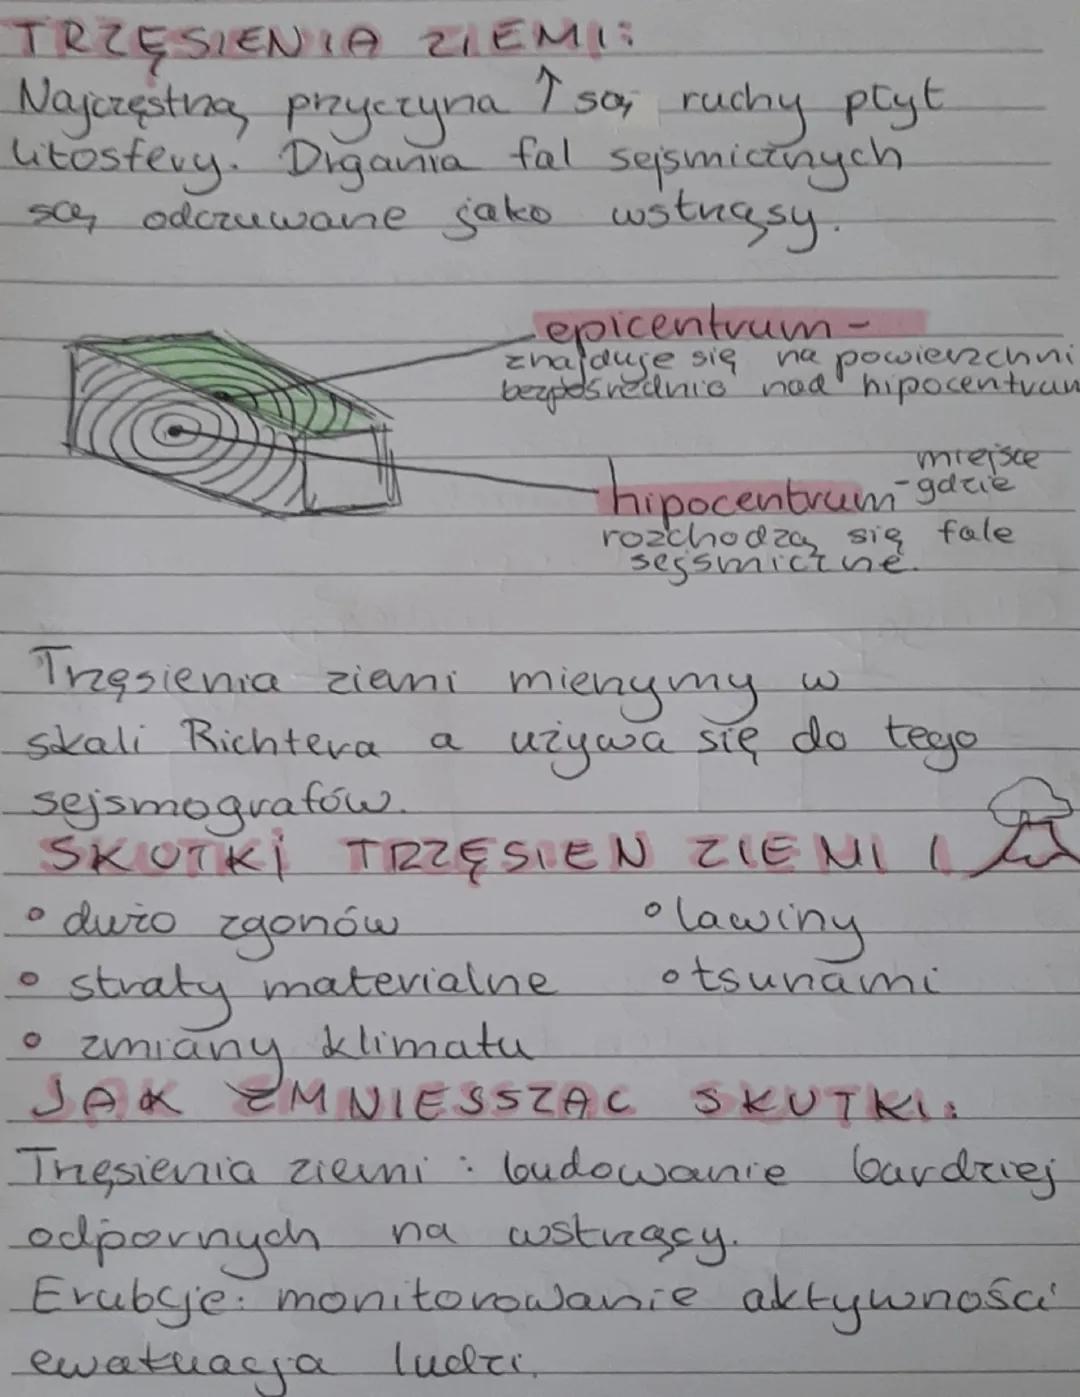 TRZĘSIENIA ZIEMI:
Najczęstrzą przyczyna ↑ są ruchy płyt
litosfery. Drgania fal sejsmicznych
są odczuwane jako wstrząsy.
epicentrum -
znajduje się na powierzchni
bezpośrednio nad hipocentrum
hipocentrum - miejsce
gdzie
rozchodzą się fale
sejsmiczne.
Trzęsienia ziemi mierzymy w
skali Richtera a używa się do tego
sejsmografów.
SKUTKI TRZĘSIEN ZIEMI I
• dużo zgonów
• lawiny
• straty materialne
• tsunami
• zmiany klimatu
JAK ZMNIESSZAC SKUTKI:
Trzęsienia ziemi: budowanie bardziej
odpornych na wstrzący.
Erubcje: monitorowanie aktywności
ewakuacja ludzi.